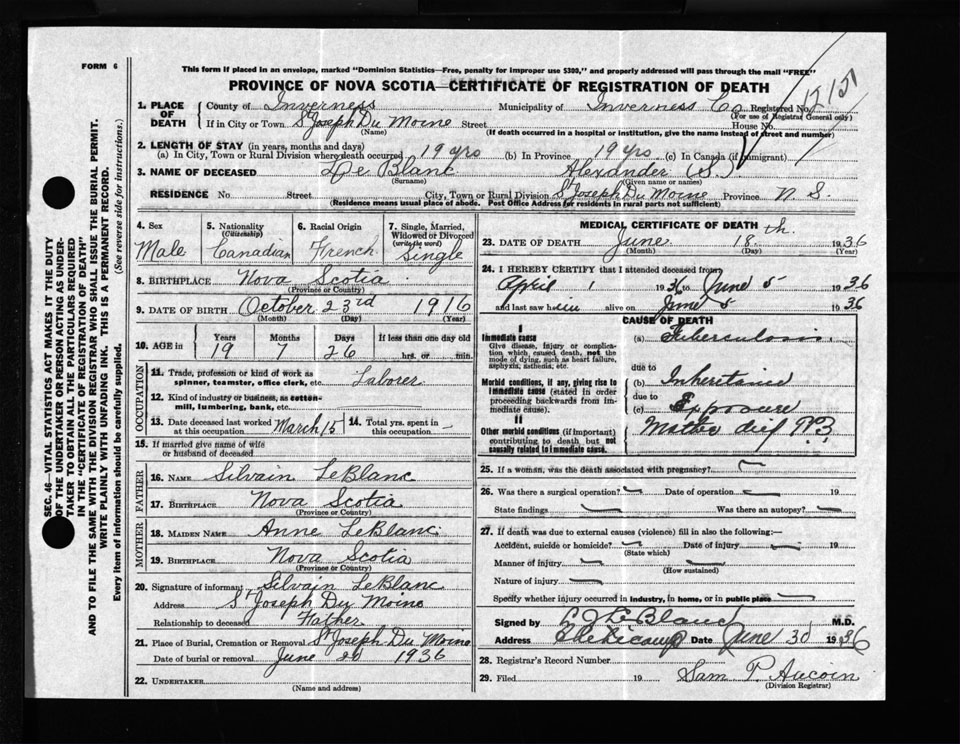 FORM 6
This form if placed in an envelope, marked "Dominion Statistics—Free, penalty for improper use $300," and properly addressed will pass through the mail "FREE"
PROVINCE OF NOVA SCOTIA—CERTIFICATE OF REGISTRATION OF DEATH
SEC. 46—VITAL STATISTICS ACT MAKES IT THE DUTY
OF THE UNDERTAKER OR PERSON ACTING AS UNDER-
TAKER TO OBTAIN ALL THE PARTICULARS REQUIRED
IN THE "CERTIFICATE OF REGISTRATION OF DEATH"
AND TO FILE THE SAME WITH THE DIVISION REGISTRAR WHO SHALL ISSUE THE BURIAL PERMIT.
WRITE PLAINLY WITH UNFADING INK. THIS IS A PERMANENT RECORD.
Every item of information should be carefully supplied. (See reverse side for instructions.)
1. PLACE OF DEATH
County of Inverness Municipality of Inverness Co Registered No.
(For use of Registrar General only)
If in City or Town St Joseph Du Moine Street House No.
(Name) (If death occurred in a hospital or institution, give its name instead of street and number)
2. LENGTH OF STAY (in years, months and days)
(a) In City, Town or Rural Division where death occurred 19 yrs (b) In Province 19 yrs (c) In Canada (if immigrant)
3. NAME OF DECEASED Le Blanc Alexander (S.)
(Surname) (Given name or names)
RESIDENCE No. Street City, Town or Rural Division St Joseph Du Moine Province N. S.
(Residence means usual place of abode. Post Office Address for residents in rural parts not sufficient)
4. Sex Male
5. Nationality (Citizenship) Canadian
6. Racial Origin French
7. Single, Married, Widowed or Divorced (write the word) Single
8. BIRTHPLACE Nova Scotia
(Province or Country)
9. DATE OF BIRTH October 23rd 1916
(Month) (Day) (Year)
10. AGE in Years 19 Months 7 Days 26 If less than one day old hrs. or min.
OCCUPATION
11. Trade, profession or kind of work as spinner, teamster, office clerk, etc. Laborer
12. Kind of industry or business, as cotton-mill, lumbering, bank, etc.
13. Date deceased last worked at this occupation March 15
14. Total yrs. spent in this occupation —
15. If married give name of wife or husband of deceased
FATHER
16. NAME Silvain LeBlanc
17. BIRTHPLACE Nova Scotia
(Province or Country)
MOTHER
18. MAIDEN NAME Anne LeBlanc
19. BIRTHPLACE Nova Scotia
(Province or Country)
20. Signature of informant Silvain LeBlanc
Address St Joseph Du Moine
Relationship to deceased Father
21. Place of Burial, Cremation or Removal St Joseph Du Moine
Date of burial or removal June 20 1936
22. UNDERTAKER
(Name and address)
MEDICAL CERTIFICATE OF DEATH
23. DATE OF DEATH June 18th 1936
(Month) (Day)
24. I HEREBY CERTIFY that I attended deceased from
April 1 1936 to June 5 1936
and last saw him alive on June 5 1936
CAUSE OF DEATH
I
Immediate cause
Give disease, injury or complication which caused death, not the mode of dying, such as heart failure, asphyxia, asthenia, etc.
(a) Tuberculosis
due to
Morbid conditions, if any, giving rise to immediate cause (stated in order proceeding backwards from immediate cause).
(b) Inheritance
due to
(c) Exposure
II
Other morbid conditions (if important) contributing to death but not causally related to immediate cause.
Mother died
25. If a woman, was the death associated with pregnancy? —
26. Was there a surgical operation? — Date of operation — 19
State findings — Was there an autopsy? —
27. If death was due to external causes (violence) fill in also the following:—
Accident, suicide or homicide? — Date of injury — 19
(State which)
Manner of injury —
(How sustained)
Nature of injury —
Specify whether injury occurred in industry, in home, or in public place —
Signed by LeBlanc M.D.
Address Cheticamp Date June 30 1936
28. Registrar's Record Number
29. Filed 19 Sam P. Aucoin
(Division Registrar)